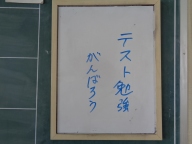 テスト勉強
がんばろう